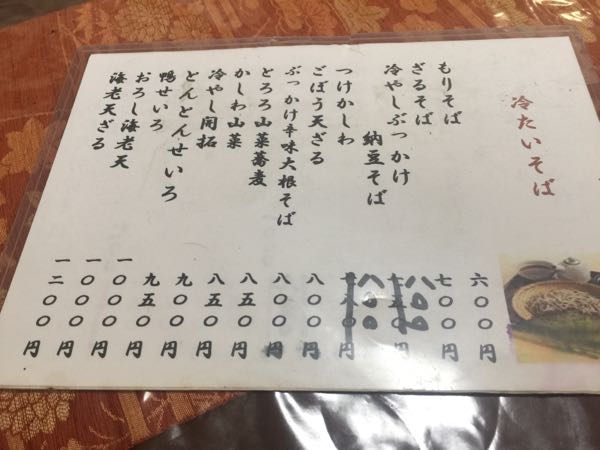 冷たいそば
もりそば
ざるそば
冷やしぶっかけ
納豆そば
つけかしわ
ごぼう天ざる
ぶっかけ辛味大根そば
とろろ山菜蕎麦
かしわ山菜
冷やし開拓
とんどんせいろ
鴨せいろ
おろし海老天
海老天ざる
六〇〇円
七〇〇円
八〇〇円
八〇〇円
八〇〇円
八〇〇円
八五〇円
八五〇円
九〇〇円
九五〇円
一〇〇〇円
一〇〇〇円
一二〇〇円